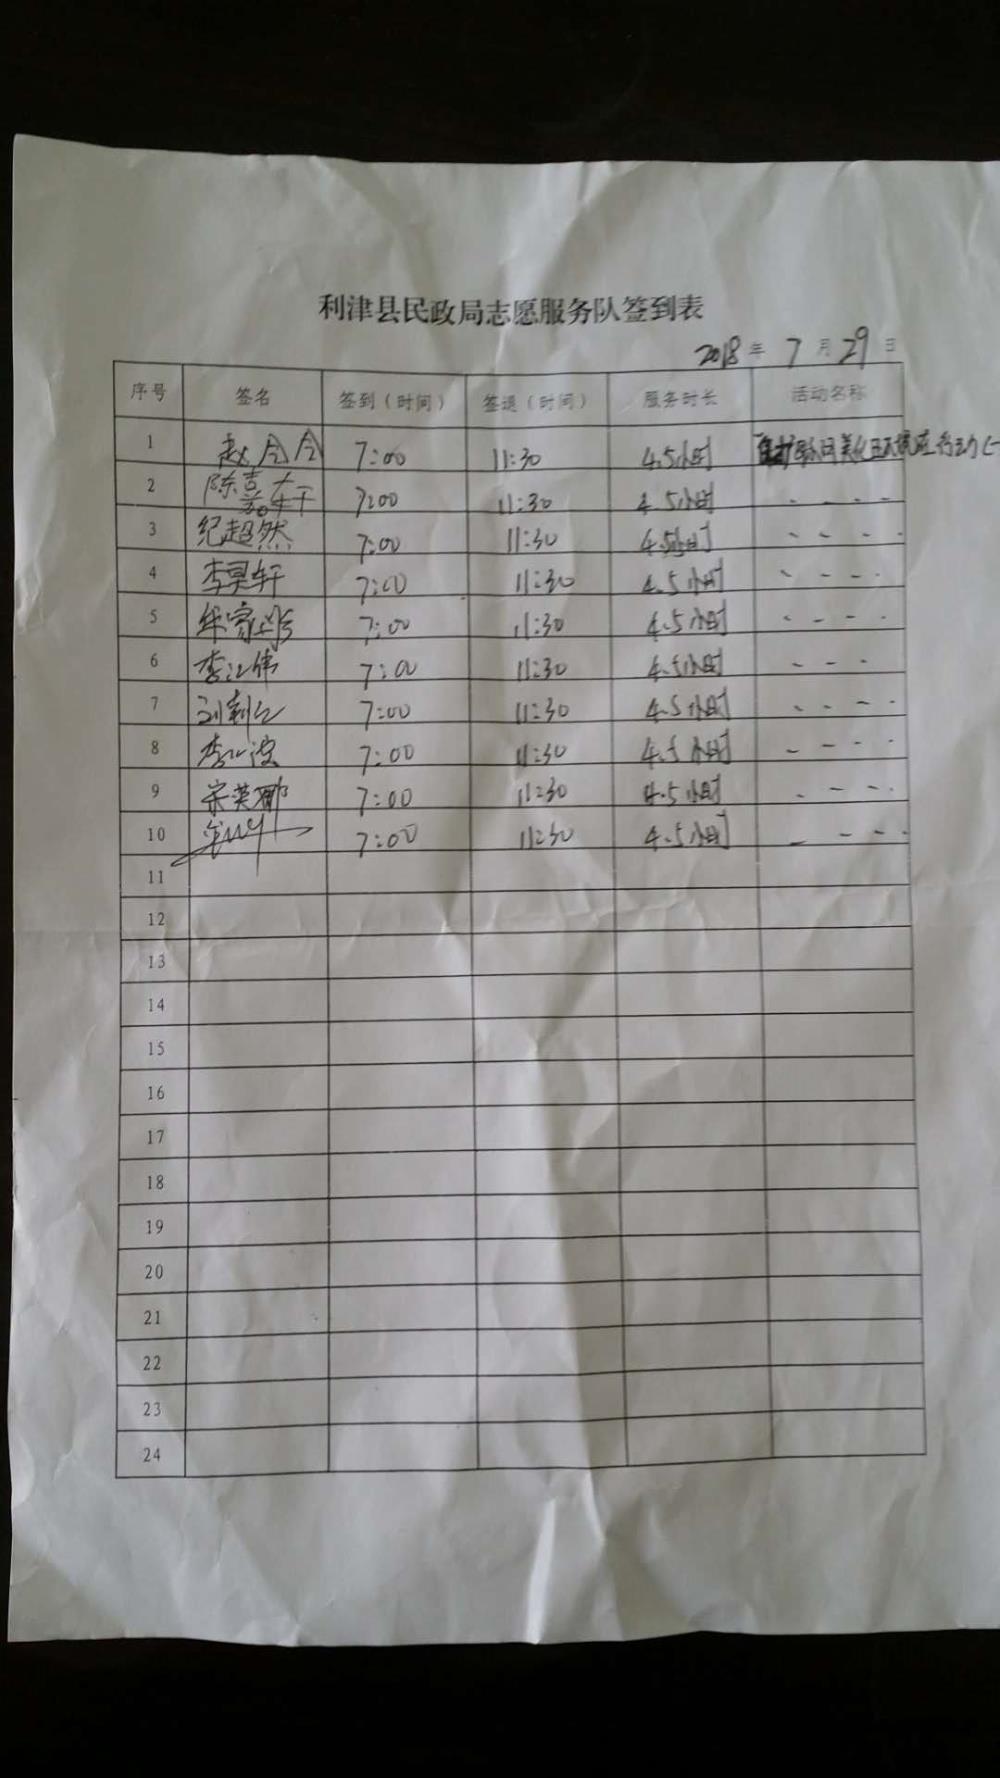 利津县民政局志愿服务队签到表
2018年 7月29日
序号 签名 签到（时间） 签退（时间） 服务时长 活动名称
1 赵 7:00 11:30 4.5小时
2 陈 7:00 11:30 4.5小时 - - - -
3 纪超然 7:00 11:30 4.5小时 - - - -
4 李昊轩 7:00 11:30 4.5小时 - - - -
5 7:00 11:30 4.5小时 - - - -
6 李江伟 7:00 11:30 4.5小时 - - -
7 刘 7:00 11:30 4.5小时 - - - -
8 李 7:00 11:30 4.5小时 - - - -
9 宋英 7:00 11:30 4.5小时 - - - -
10 7:00 11:30 4.5小时 - - - -
11
12
13
14
15
16
17
18
19
20
21
22
23
24